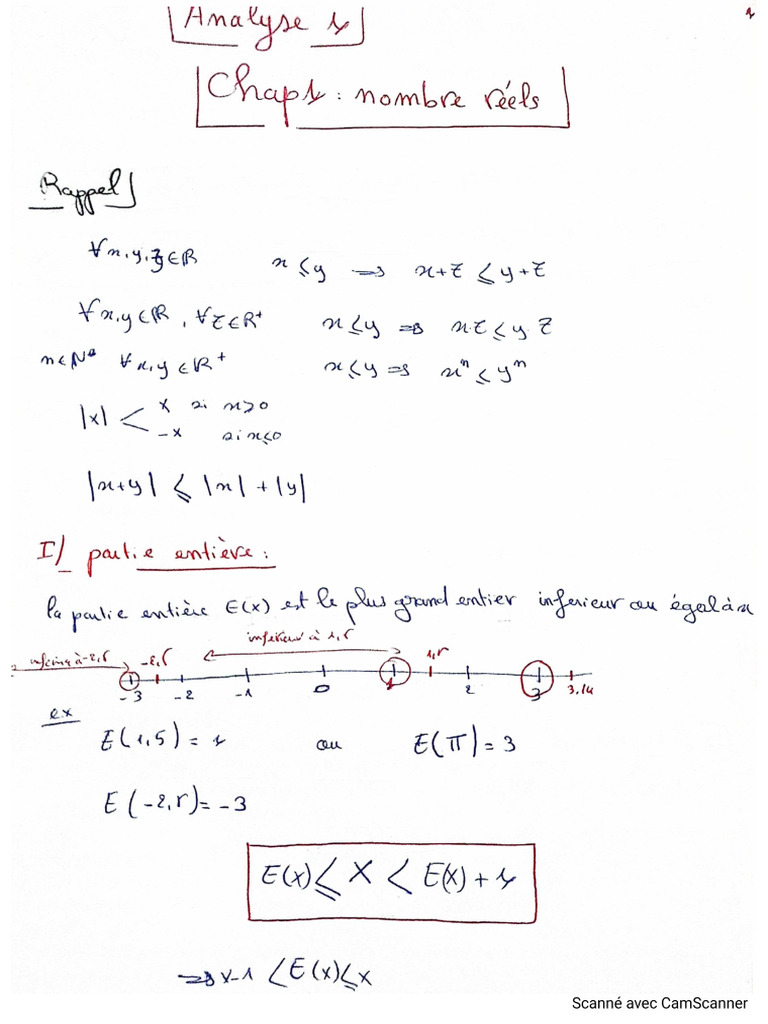 1
Analyse 1
Chap1 : nombre réels
Rappel
∀x,y,z∈ℝ x ≤ y ⟹ x+z ≤ y+z
∀x,y∈ℝ, ∀z∈ℝ⁺ x≤y ⟹ xz ≤ yz
n∈ℕ* ∀x,y∈ℝ⁺ x≤y ⟹ xⁿ ≤ yⁿ
|x| < x si x≥0
-x si x≤0
|x+y| ≤ |x| + |y|
I/ partie entière :
la partie entière E(x) est le plus grand entier inferieur ou égal à x
inferieur à 1,5
-2,5 1,5
-3 -2 -1 0 1 2 3 3,14
ex
E(1,5) = 1 ou E(π) = 3
E(-2,5) = -3
E(x) ≤ x < E(x) + 1
⟹ x-1 < E(x) ≤ x
Scanné avec CamScanner